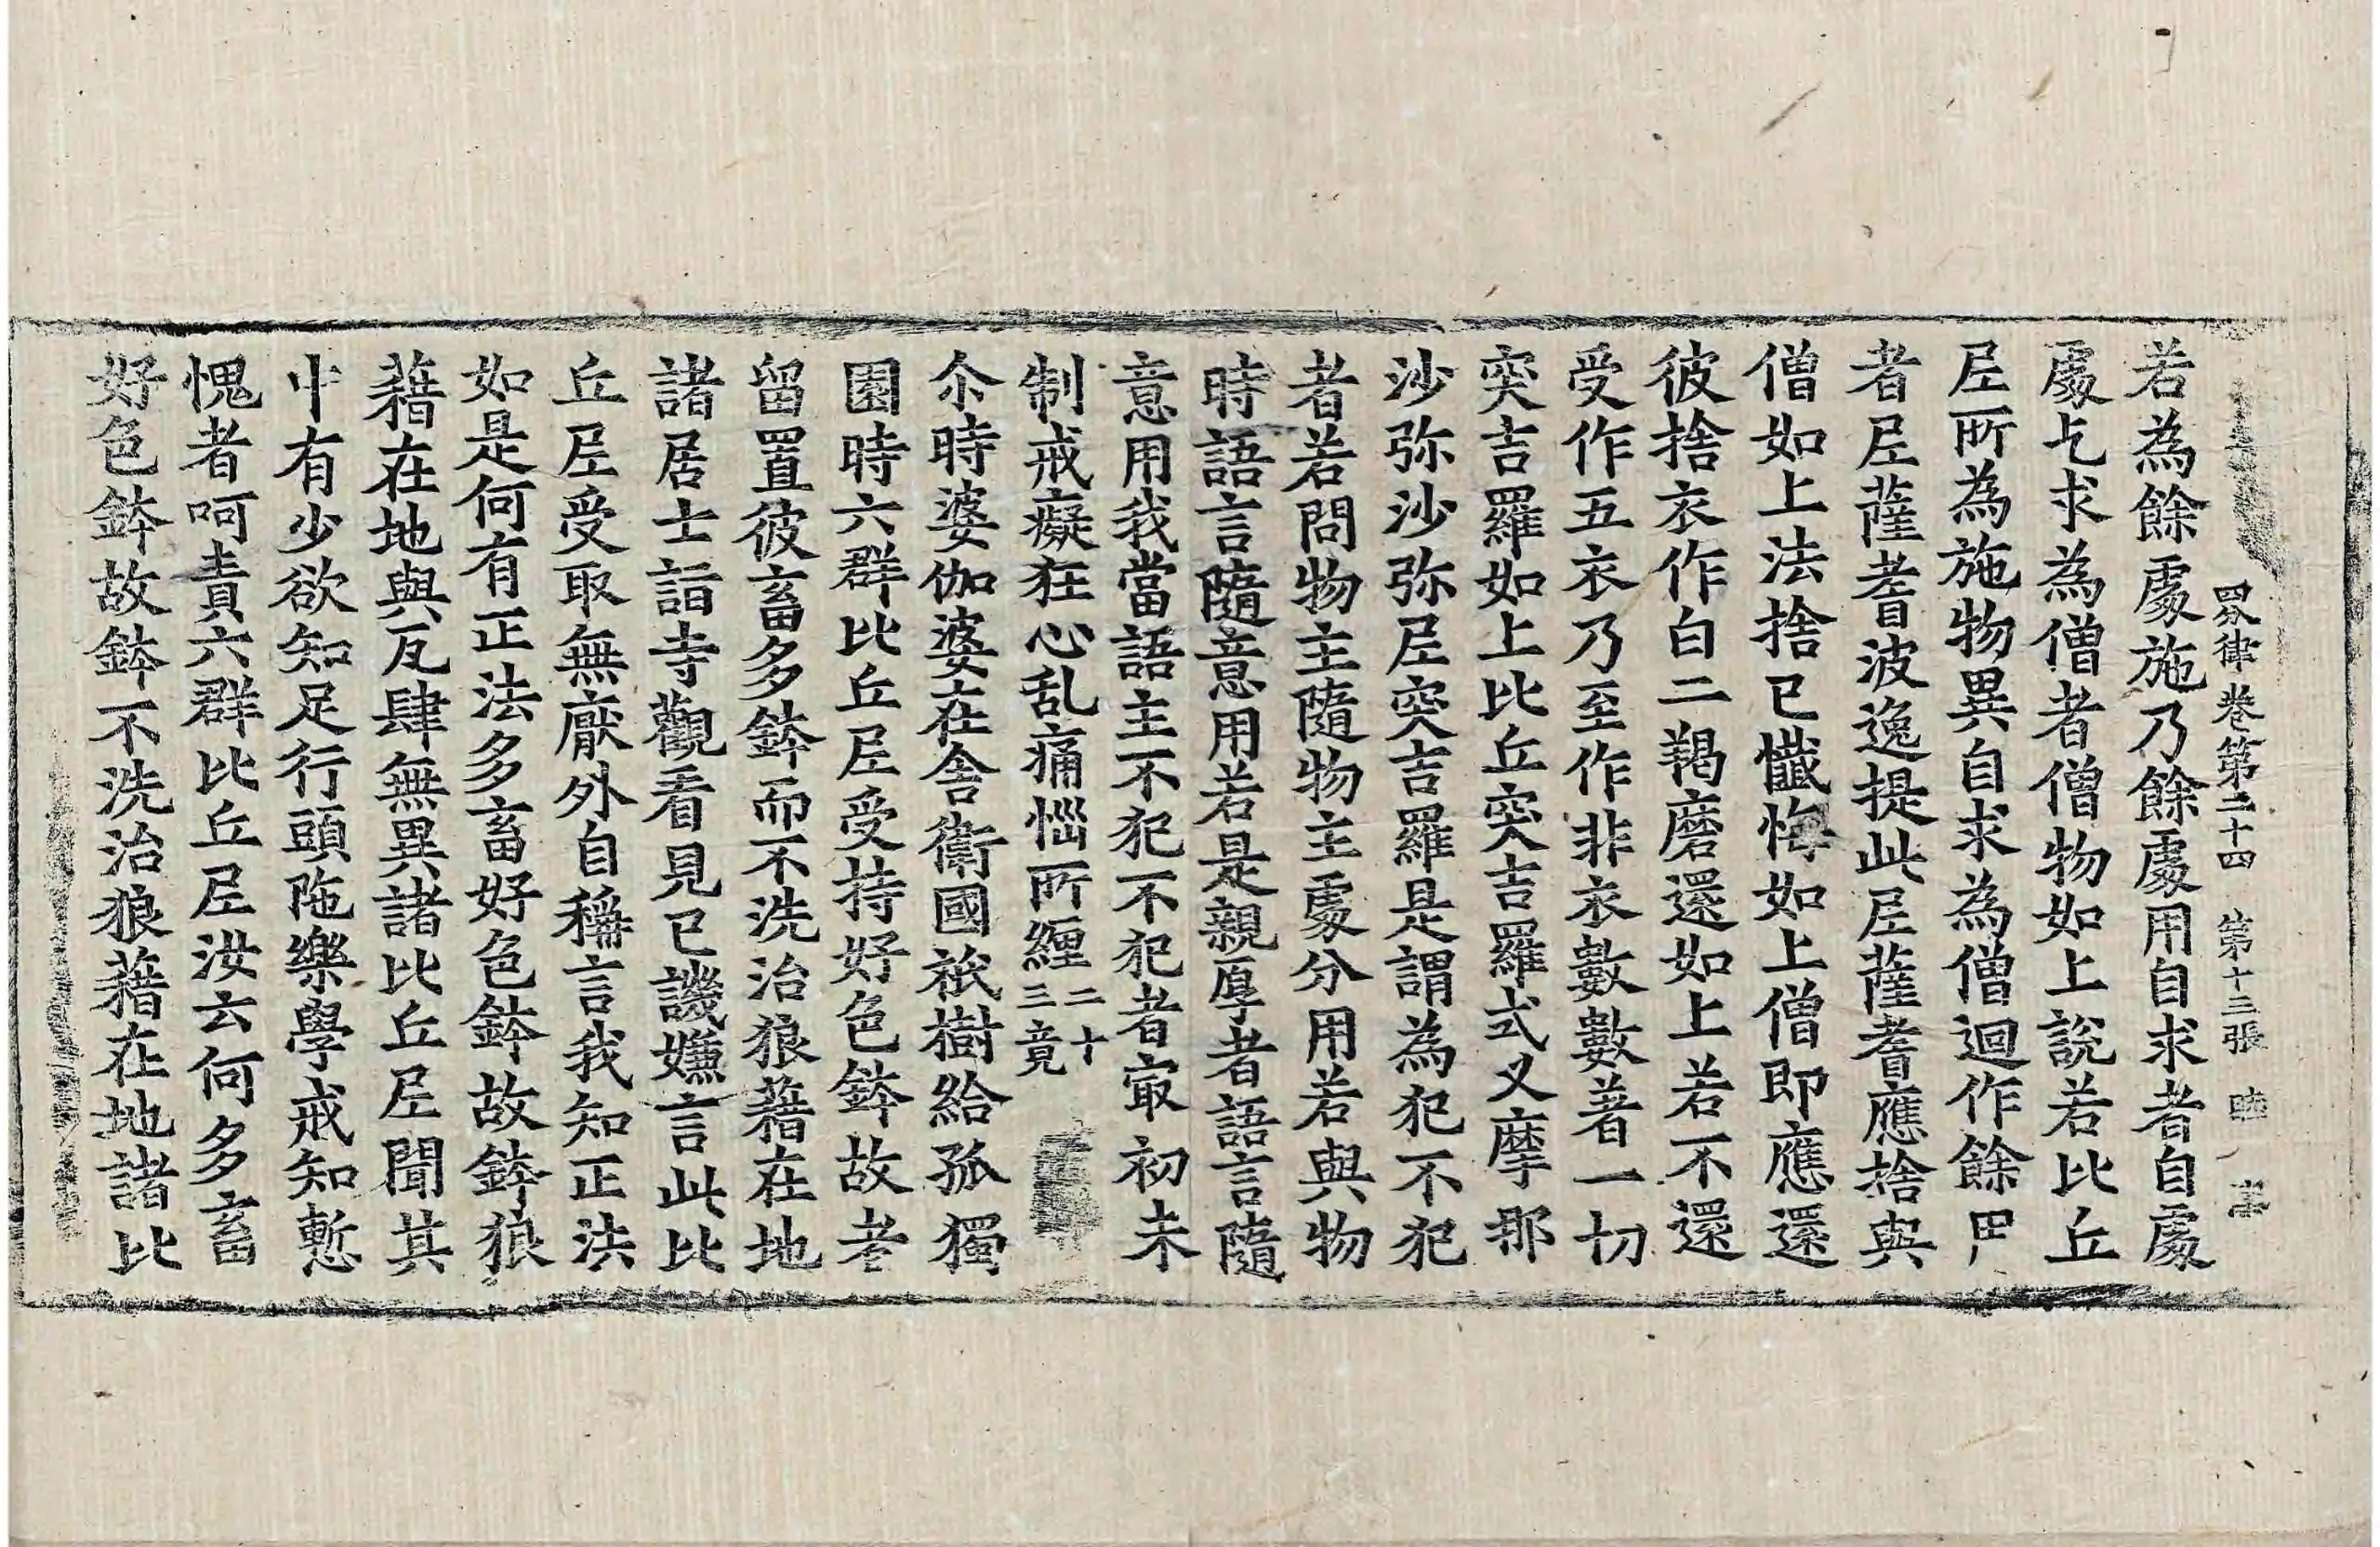 四分律卷第二十四　第十三張　睦
若為餘處施乃餘處用自求者自處
處乞求為僧者僧物如上說若比丘
尼所為施物異自求為僧迴作餘用
者尼薩耆波逸提此尼薩耆應捨與
僧如上法捨已懺悔如上僧即應還
彼捨衣作白二羯磨還如上若不還
受作五衣乃至作非衣數數著一切
突吉羅如上比丘突吉羅式叉摩那
沙弥沙弥尼突吉羅是謂為犯不犯
者若問物主隨物主處分用若與物
時語言隨意用若是親厚者語言隨
意用我當語主不犯不犯者㝡初未
制戒癡狂心乱痛惱所纏二十三竟
尒時婆伽婆在舍衛國祇樹給孤獨
園時六群比丘尼受持好色鉢故者
留置彼畜多鉢而不洗治狼藉在地
諸居士詣寺觀看見已譏嫌言此比
丘尼受取無厭外自稱言我知正法
如是何有正法多畜好色鉢故鉢狼
藉在地與瓦肆無異諸比丘尼聞其
中有少欲知足行頭陁樂學戒知慙
愧者呵責六群比丘尼汝云何多畜
好色鉢故鉢不洗治狼藉在地諸比